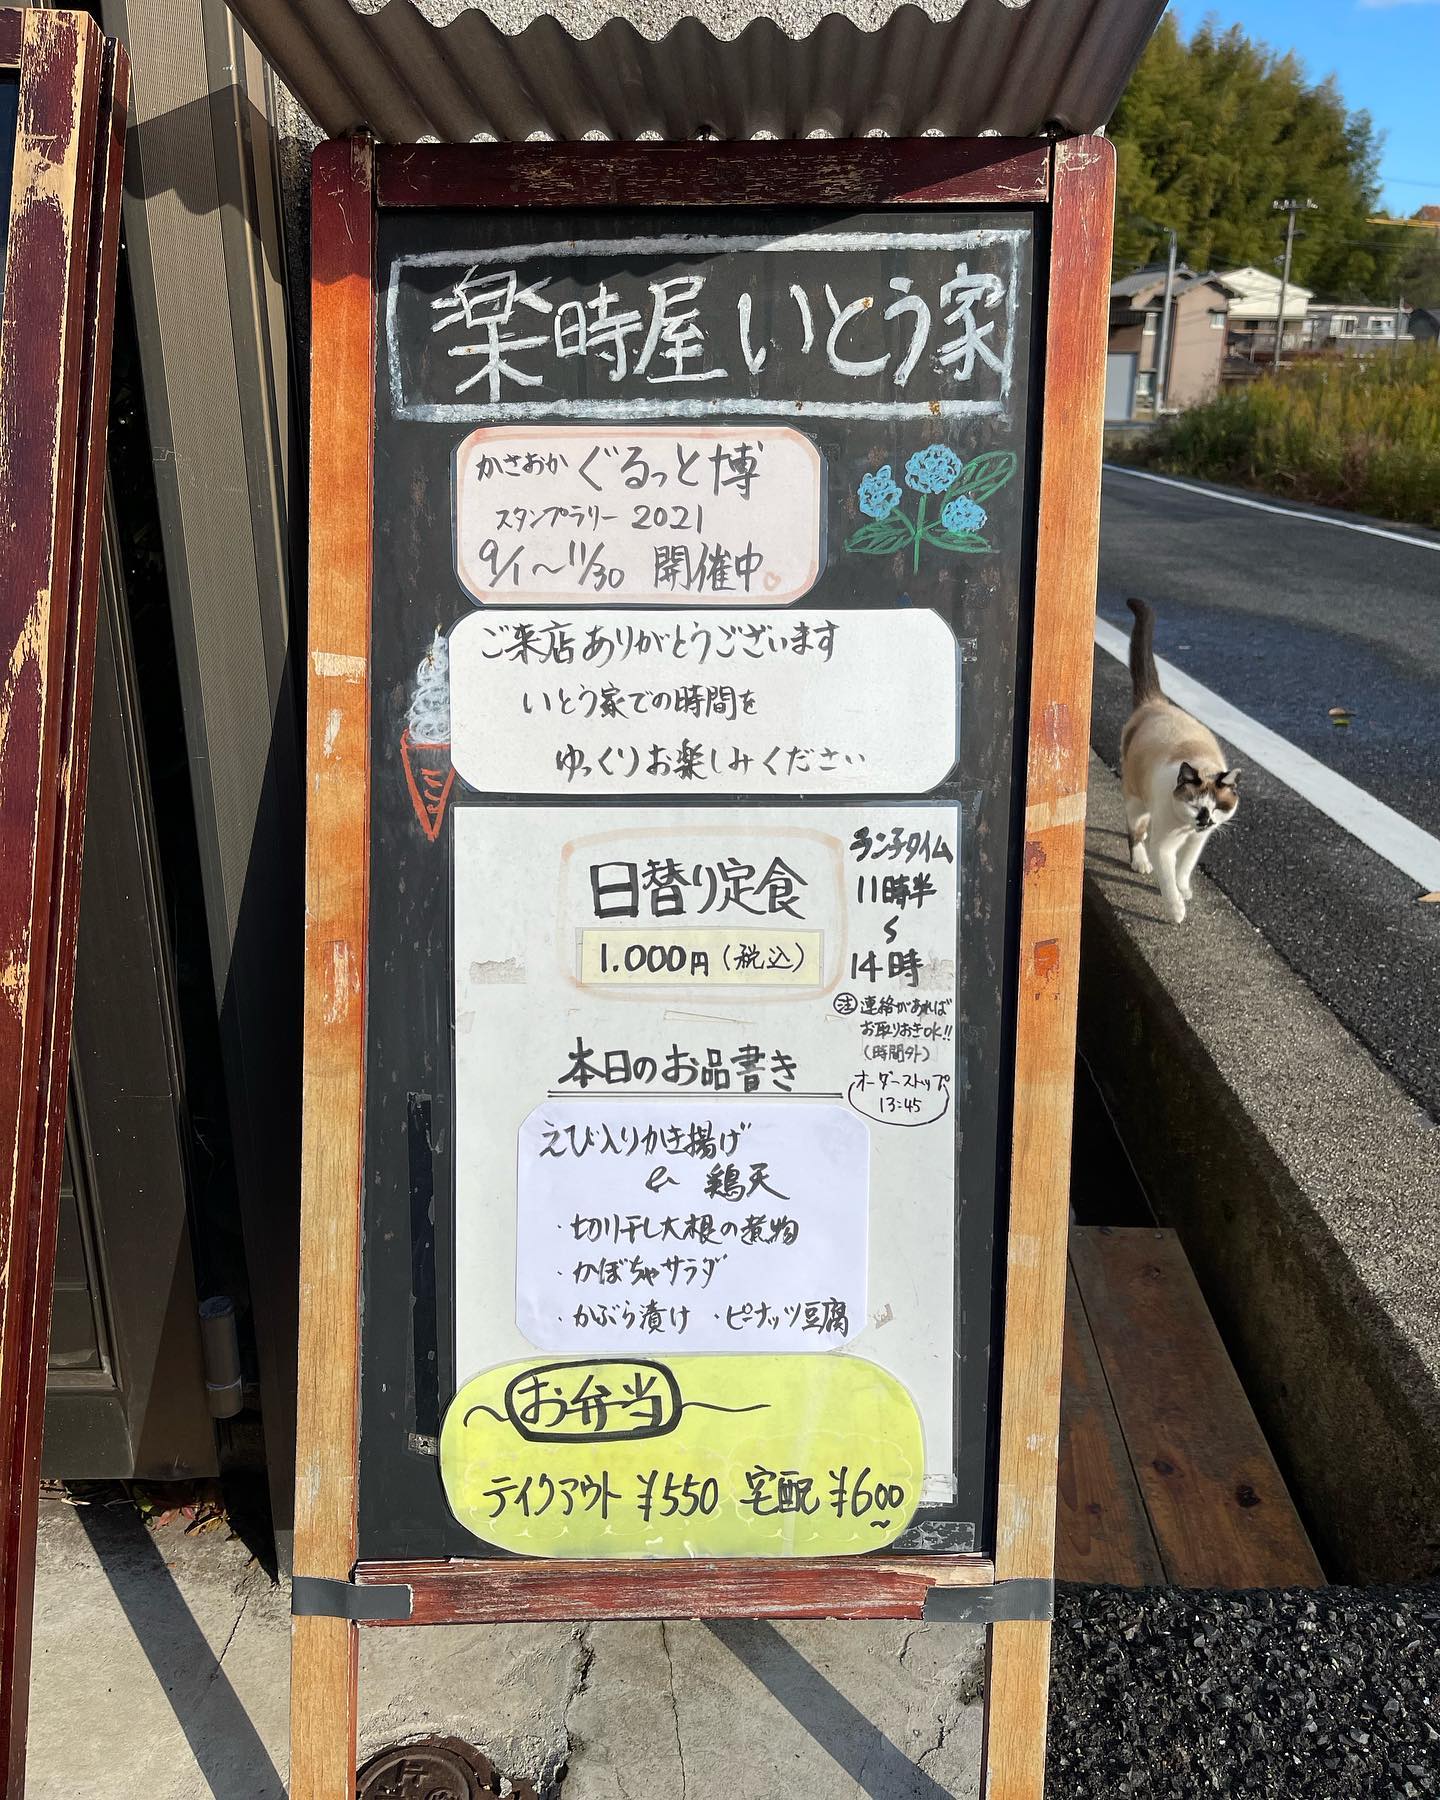 楽時屋 いとう家
かさおか ぐるっと博
スタンプラリー 2021
9/1〜11/30 開催中
ご来店ありがとうございます
いとう家での時間を
ゆっくりお楽しみください
日替り定食
1.000円(税込)
ランチタイム
11時半
〜
14時
注 連絡があれば
お取りおきOK!!
(時間外)
オーダーストップ
13:45
本日のお品書き
えび入りかき揚げ
& 鶏天
・切り干し大根の煮物
・かぼちゃサラダ
・かぶら漬け ・ピーナッツ豆腐
お弁当
テイクアウト ¥550 宅配 ¥600〜